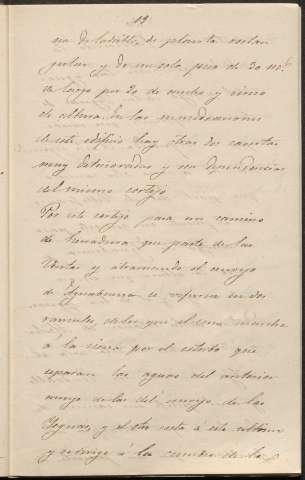 12
na de ladrillo, de planta rectan
gular y de un solo piso de 30 m.
de largo por 20 de ancho y cinco
de altura. En las inmediaciones
de este edificio hay otras dos casetas
muy deterioradas y son dependencias
del mismo cortijo.
Por este cortijo pasa un camino
de herradura que parte de las
Ventas y atravesando el arroyo
de se bifurca en dos
ramales de los que el uno marcha
á la sierra por el estribo que
separan las aguas del anterior
arroyo de las del arroyo de las
Yeguas, y el otro á este último
y se dirige á la cumbre de la